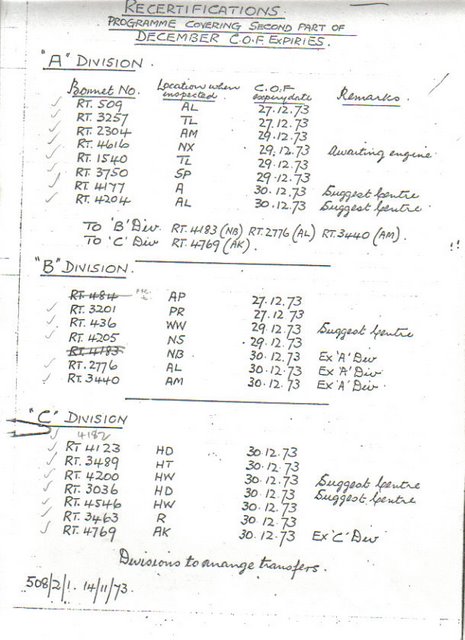 RECERTIFICATIONS.
PROGRAMME COVERING SECOND PART OF
DECEMBER C.O.F EXPIRIES.
"A" DIVISION.
Bonnet No. Location when inspected. C.O.F expiry date Remarks.
RT. 509 AL 27.12.73
RT. 3257 TL 27.12.73
RT. 2304 AM 29.12.73
RT. 4616 NX 29.12.73 Awaiting engine.
RT. 1540 TL 29.12.73
RT. 3750 SP 29.12.73
RT. 4177 A 30.12.73 Suggest Centre.
RT. 4204 AL 30.12.73 Suggest Centre.
To 'B' Div RT. 4183 (NB) RT. 2776 (AL) RT. 3440 (AM).
To 'C' Div RT. 4769 (AK).
"B" DIVISION.
RT. 484 AP 27.12.73
RT. 3201 PR 27.12.73
RT. 436 WW 29.12.73 Suggest Centre
RT. 4205 NS 29.12.73
RT. 4183 NB 30.12.73 Ex 'A' Div
RT. 2776 AL 30.12.73 Ex 'A' Div
RT. 3440 AM 30.12.73 Ex 'A' Div
"C" DIVISION
4182
RT 4123 HD 30.12.73
RT. 3489 HT 30.12.73
RT. 4200 HW 30.12.73 Suggest Centre
RT. 3036 HD 30.12.73 Suggest Centre
RT. 4546 HW 30.12.73
RT. 3463 R 30.12.73
RT. 4769 AK 30.12.73 Ex 'C' Div
Divisions to arrange transfers.
508/2/1. 14/11/73.